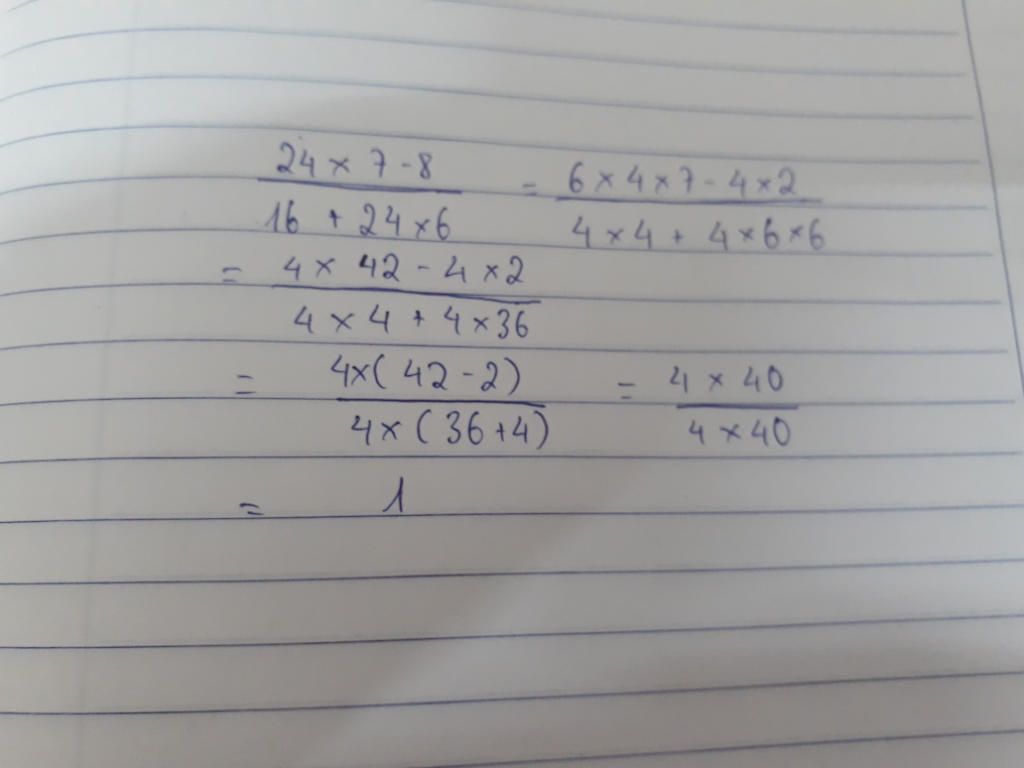 24 × 7 - 8 / 16 + 24 × 6 = 6 × 4 × 7 - 4 × 2 / 4 × 4 + 4 × 6 × 6
= 4 × 42 - 4 × 2 / 4 × 4 + 4 × 36
= 4 × ( 42 - 2 ) / 4 × ( 36 + 4 ) = 4 × 40 / 4 × 40
= 1